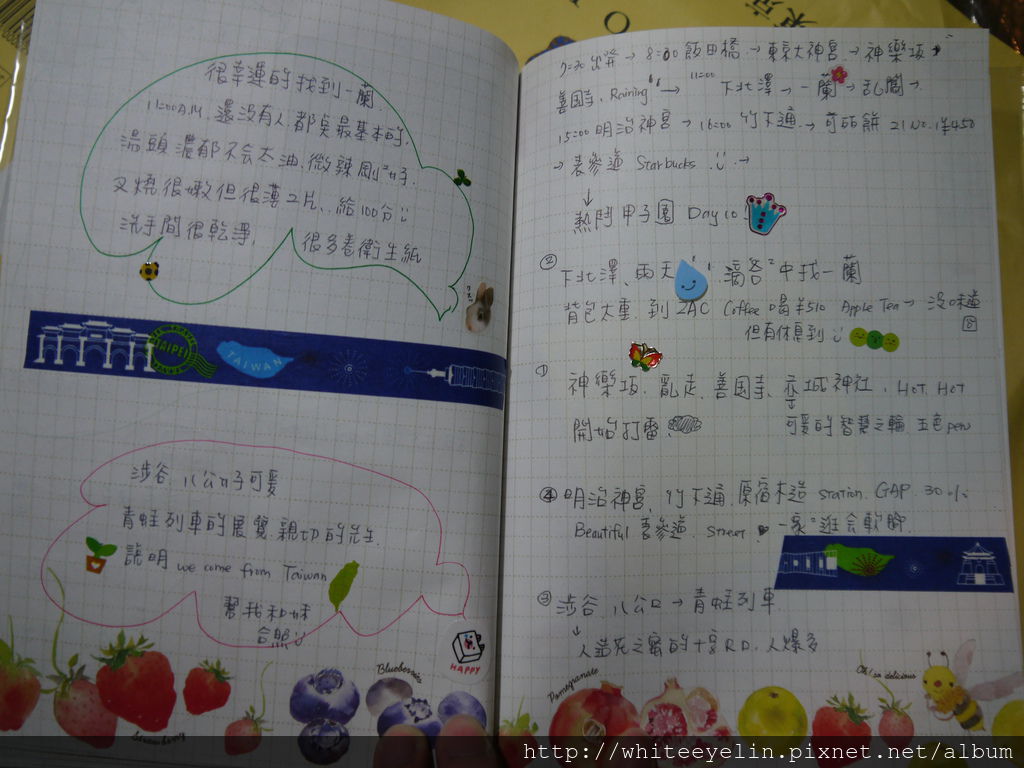 很幸運的找到一蘭.
11:00A.M. 還沒有人.都点最基本的.
湯頭濃郁不会太油.微辣剛²好.
叉燒很嫩但很薄2片、給100分
洗手間很乾淨, 很多卷衛生紙
TAIPEI
TAIWAN
涉谷 八公口子可愛
青蛙列車的展覽.親切的先生.
說明 we come from Taiwan
幫我和妹
合照
HAPPY
Blueberries
Strawberry
7:30 出發 → 8:00 飯田橋 → 東京大神宮 → 神樂坂 →
善国寺, Raining → 11:00 下北澤 → 一蘭 → 乱闖 →
15:00 明治神宮 → 16:00 竹下通 → 可丽餅 21No.1¥450
→ 表參道 Starbucks →
↓
熱鬥甲子園 Day10
② 下北澤、雨天 滴答²中找一蘭
背包太重. 到 ZAC Coffee 喝¥510 Apple Tea → 沒味道
但有休息到
① 神樂坂. 亂走、善国寺、赤城神社, HOT, HOT
開始打雷, 可愛的智慧之輪 五色pen
④ 明治神宮, 竹下通.原宿木造 station. GAP. 30%
Beautiful 表參道. street 一家²逛会軟腳.
③ 涉谷 八公口 → 青蛙列車
↓
人造死之蜜的十字RD. 人爆多
Pomegranate
Oh! so delicious
http://whiteeyelin.pixnet.net/album